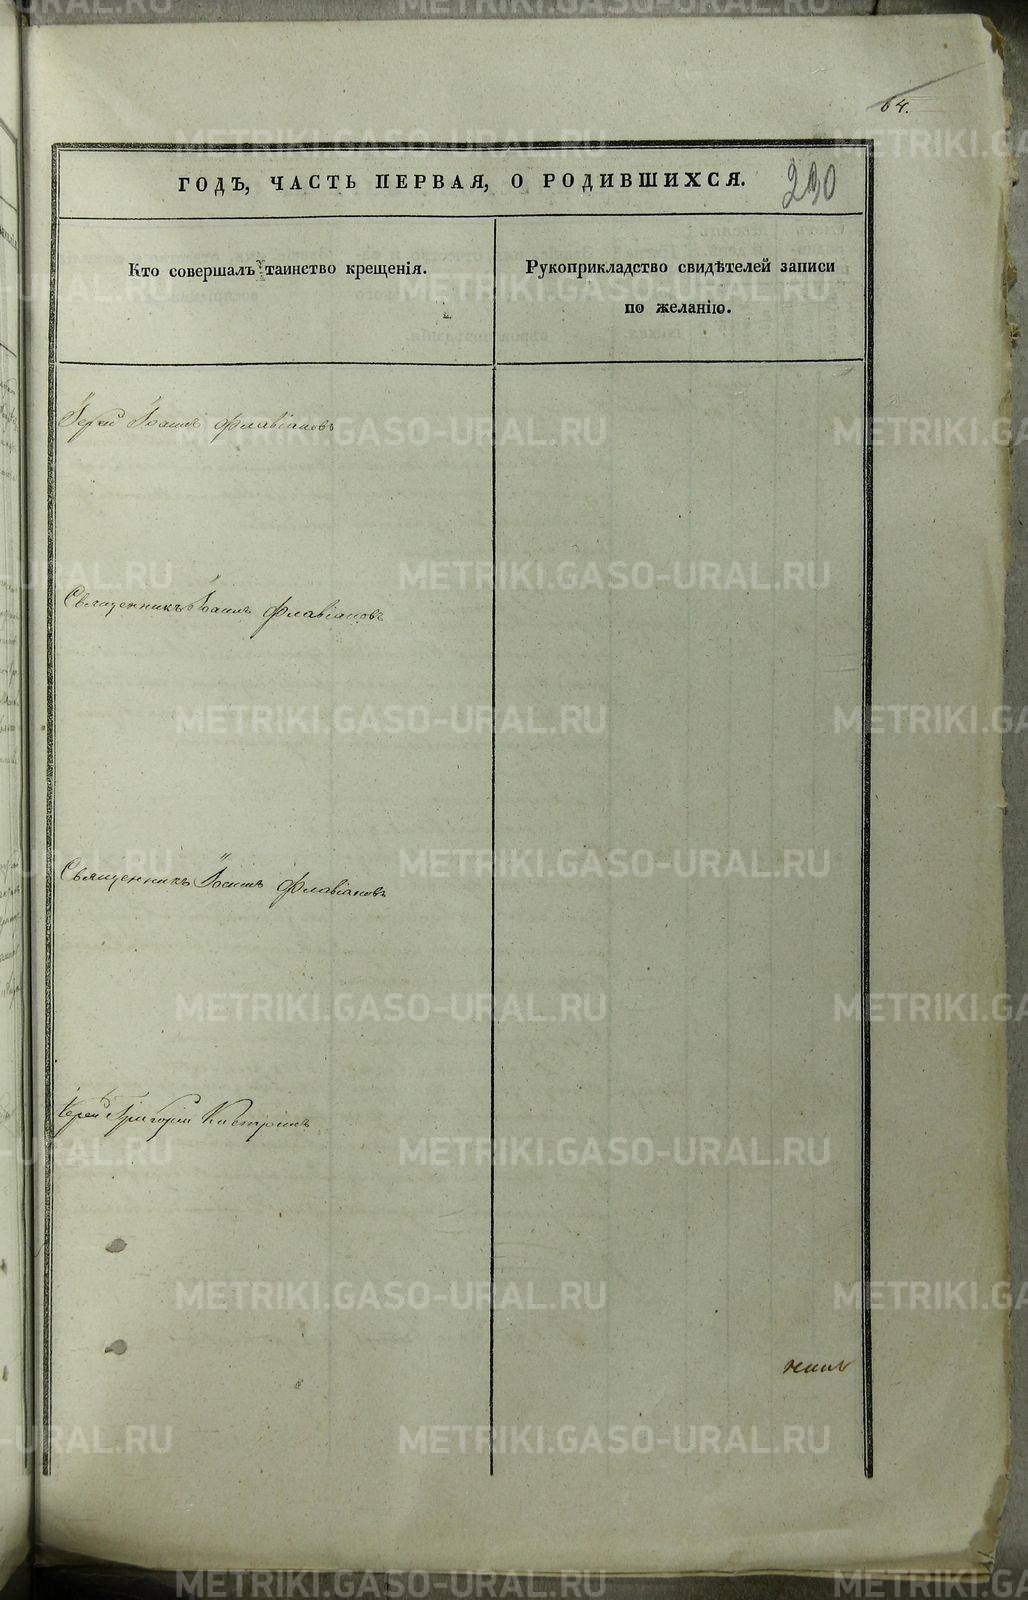 64.
ГОДЪ, ЧАСТЬ ПЕРВАЯ, О РОДИВШИХСЯ.
230
Кто совершалъ таинство крещенія.
Рукоприкладство свидѣтелей записи
по желанію.
Іерей Іоаннъ Флавіановъ
Священникъ Іоаннъ Флавіановъ
Священникъ Іоаннъ Флавіановъ
Іерей Григорій
METRIKI.GASO-URAL.RU